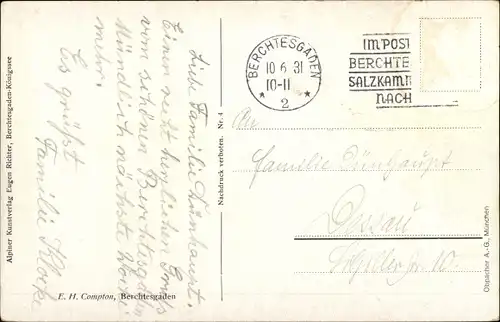 Liebe Familie Dünhaupt.
Einen recht herzlichen Gruß
vom schönen Berchtesgaden
Mündlich nächste Woche
mehr.
Es grüßt
Familie
Alpiner Kunstverlag Eugen Richter, Berchtesgaden-Königssee
E. H. Compton, Berchtesgaden
Nachdruck verboten. Nr. 4
BERCHTESGADEN
10 6 31
10-11
* 2 *
IM POST
BERCHTE
SALZKAM
NACH
An
Familie Dünhaupt
Dessau
10
Obpacher A.-G., München